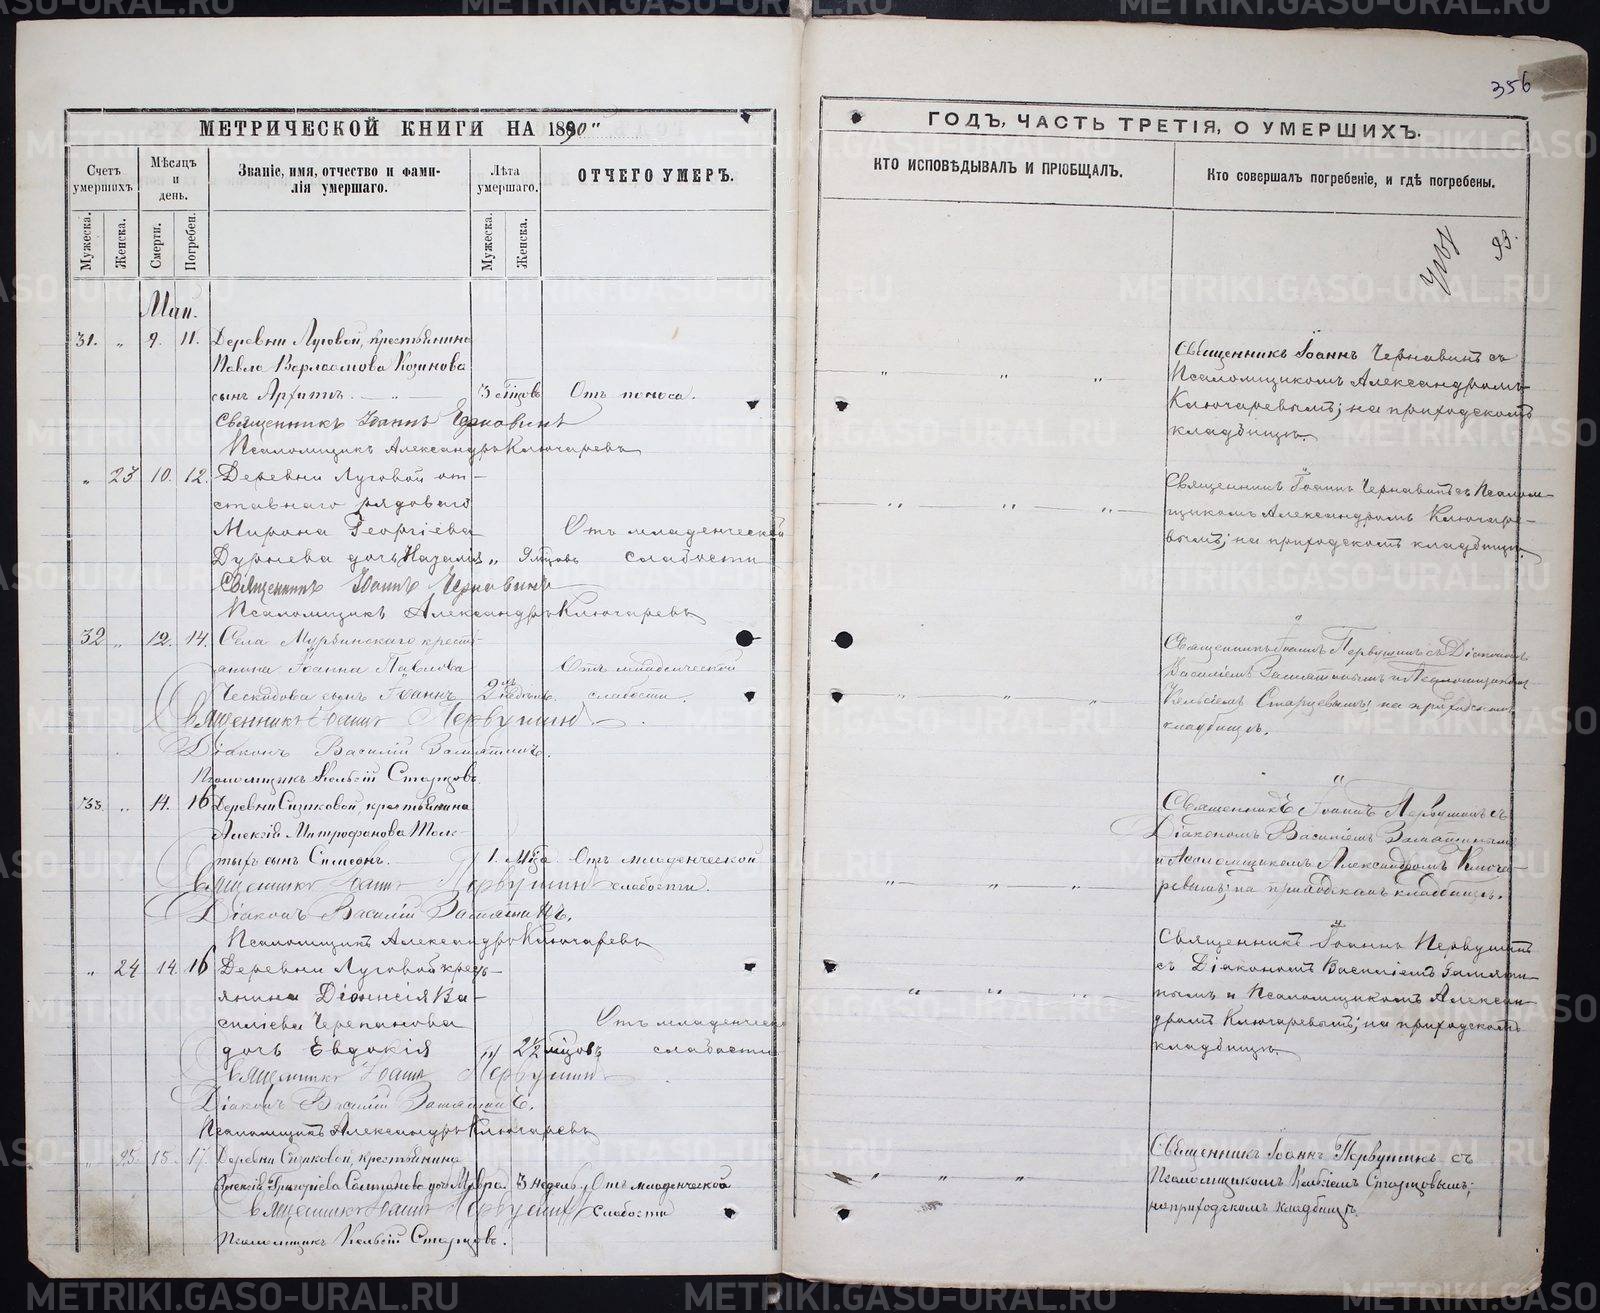 356
МЕТРИЧЕСКОЙ КНИГИ НА 1890"
Счетъ умершихъ.
Мужеска.
Женска.
Мѣсяцъ и день.
Смерти.
Погребен.
Званіе, имя, отчество и фами-
лія умершаго.
Лѣта умершаго.
Мужеска.
Женска.
ОТЧЕГО УМЕРЪ.
Маи.
31. " 9. 11. Деревни Луговой, крестьянина
Павла Варлаамова Козинова
сынъ Архипъ. 3 мѣсцовъ Отъ поноса.
Священникъ Іоаннъ Чернавинъ
Псаломщикъ Александръ Ключаревъ
" 23 10. 12. Деревни Луговой от-
ставнаго рядоваго
Мирона Георгіева Отъ младенческой
дочь Наталія " 9 мѣсцовъ слабости
Священникъ Іоаннъ Чернавинъ
Псаломщикъ Александръ Ключаревъ
32 " 12. 14. Села Мурзинскаго крестья-
янина Іоанна Павлова Отъ младенческой
сынъ Іоаннъ 2хъ недѣль. слабости.
Священникъ Іоаннъ Первушинъ
Діаконъ Василій Замятинъ.
Псаломщикъ Кельсій Старцовъ.
33. " 14. 16 Деревни Сизиковой, крестьянина
Алексія Митрофанова Толс-
тыхъ сынъ Симеонъ. 1. мѣсца Отъ младенческой
Священникъ Іоаннъ Первушинъ слабости.
Діаконъ Василій Замятинъ.
Псаломщикъ Александръ Ключаревъ
" 24 14. 16 Деревни Луговой крес-
янина Діонисія Ва-
силіева Черепанова Отъ младенческ
дочь Евдокія " 2½ мѣсцовъ слабости
Священникъ Іоаннъ Первушинъ
Діаконъ Василій Замятинъ.
Псаломщикъ Александръ Ключаревъ
" 25. 15. 17. Деревни Сизиковой, крестьянина
Алексія Григоріева дочь Мавра. 3 недѣль Отъ младенческой
Священникъ Іоаннъ Первушинъ слабости
Псаломщикъ Кельсій Старцовъ.
ГОДЪ, ЧАСТЬ ТРЕТІЯ, О УМЕРШИХЪ.
КТО ИСПОВѢДЫВАЛЪ И ПРІОБЩАЛЪ.
Кто совершалъ погребеніе, и гдѣ погребены.
93.
Священникъ Іоаннъ Чернавинъ съ
Псаломщикомъ Александромъ
Ключаревымъ; на приходскомъ
кладбищѣ.
Священникъ Іоаннъ Чернавинъ съ Псалом-
щикомъ Александромъ Ключаре-
вымъ; на приходскомъ кладбищѣ.
Священникъ Іоаннъ Первушинъ съ Діакономъ
Василіемъ Замятинымъ и Псаломщикомъ
Кельсіемъ Старцевымъ; на приходскомъ
кладбищѣ.
Священникъ Іоаннъ Первушинъ съ
Діакономъ Василіемъ Замятинымъ
и Псаломщикомъ Александромъ Ключа-
ревымъ; на приходскомъ кладбищѣ.
Священникъ Іоаннъ Первушинъ
съ Діакономъ Василіемъ Замяти-
нымъ и Псаломщикомъ Алексан-
дромъ Ключаревымъ; на приходскомъ
кладбищѣ.
Священникъ Іоаннъ Первушинъ съ
Псаломщикомъ Кельсіемъ Старцовымъ;
на приходскомъ кладбищѣ.
METRIKI.GASO-URAL.RU